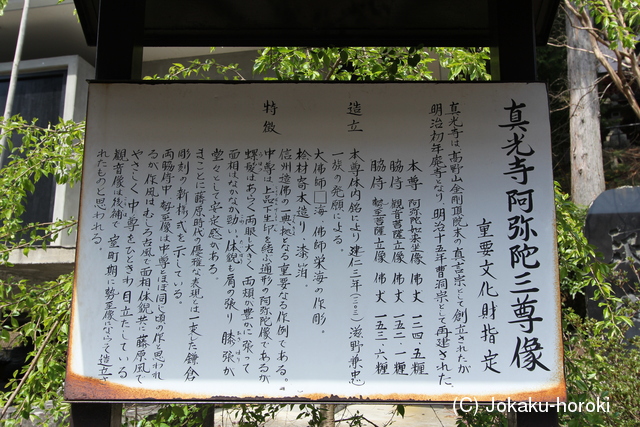 真光寺阿弥陀三尊像
重要文化財指定
真光寺は高野山金剛頂院末の真言宗として創立されたが
明治初年廃寺となり、明治十五年曹洞宗として再建された。
本尊 阿弥陀如来坐像 佛丈 一三四・五糎
脇侍 観音菩薩立像 佛丈 一五二・一糎
脇侍 勢至菩薩立像 佛丈 一五三・六糎
造立 本尊体内銘により、建仁三年(一二〇三)滋野兼忠
一族の発願による。
大佛師□海 佛師栄海の作彫。
桧材寄木造り、漆箔。
特徴 信州造佛の一典拠となる重要なる作例である。
中尊は上品下生印を結ぶ通形の阿弥陀像であるが
螺髪はあらく両眼し大きく 両頬の豊かに張って
面相はなかなか勁い。体貌も肩の張り 膝張が
堂々として安定感がある。
まことに藤原時代の優雅な表現とは一変した鎌倉
彫刻の新様式を示している。
両脇侍中 勢至像は中尊とほぼ同じ頃の作と思われ
るが、作風はむしろ古風で面相体貌共に藤原風で
やさしく 中尊をひときわ目立たしている
観音像は後補で 室町期に勢至像にならって造立さ
れたものと思われる。
(C) Jokaku-horoki